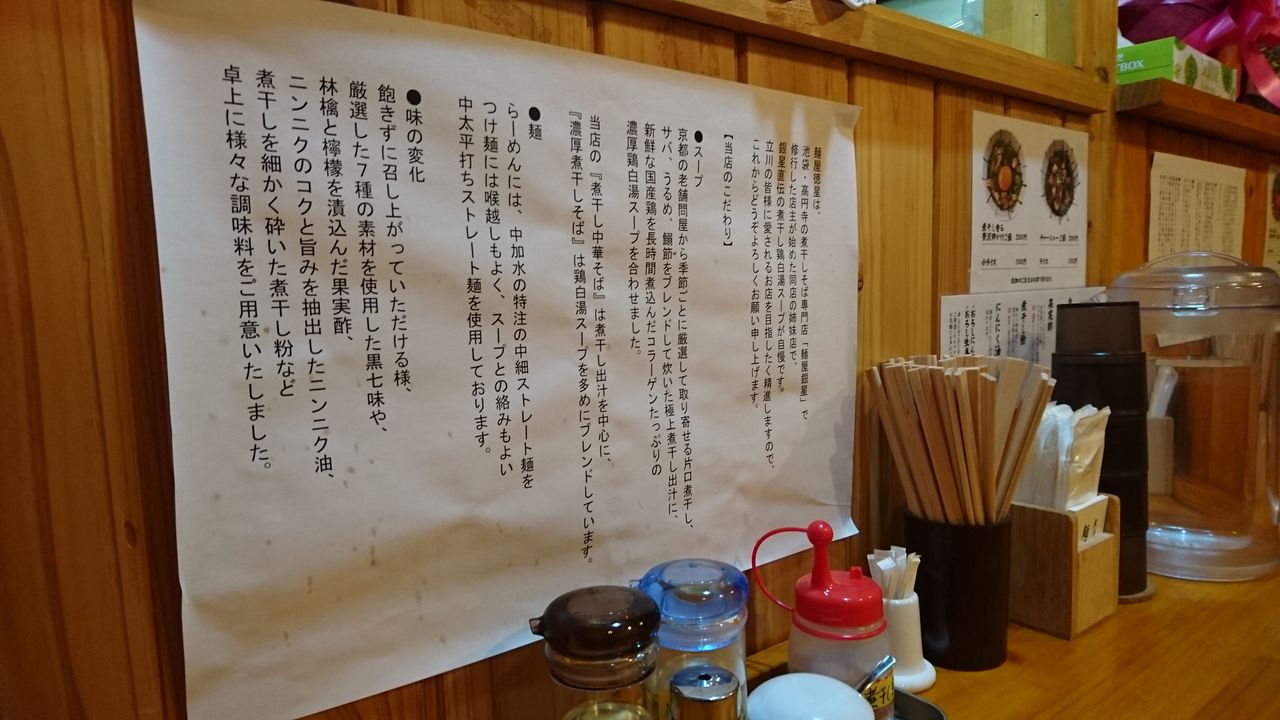 麺屋徳星は、
池袋・高円寺の煮干しそば専門店「麺屋銀星」で
修行した店主が始めた同店の姉妹店で、
銀星直伝の煮干し鶏白湯スープが自慢です。
立川の皆様に愛されるお店を目指したく精進しますので、
これからどうぞよろしくお願い申し上げます。
【当店のこだわり】
●スープ
京都の老舗問屋から季節ごとに厳選して取り寄せる片口煮干し、
サバ、うるめ、鰯節をブレンドして炊いた極上煮干し出汁に、
新鮮な国産鶏を長時間煮込んだコラーゲンたっぷりの
濃厚鶏白湯スープを合わせました。
当店の『煮干し中華そば』は煮干し出汁を中心に、
『濃厚煮干しそば』は鶏白湯スープを多めにブレンドしています。
●麺
らーめんには、中加水の特注の中細ストレート麺を
つけ麺には喉越しもよく、スープとの絡みもよい
中太平打ちストレート麺を使用しております。
●味の変化
飽きずに召し上がっていただける様、
厳選した7種の素材を使用した黒七味や、
林檎と檸檬を漬込んだ果実酢、
ニンニクのコクと旨みを抽出したニンニク油、
煮干しを細かく砕いた煮干し粉など
卓上に様々な調味料をご用意いたしました。
BOX
チャーシューご飯
小ライス
ライス
果実酢
にんにく油
煮干し粉
煮干し